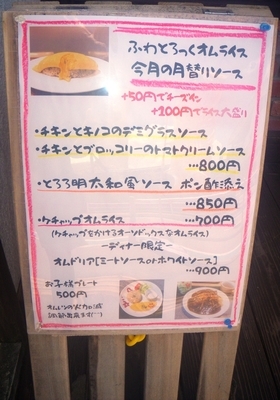 ふわとろっくオムライス
今月の月替りソース
+50円でチーズイン
+100円でライス大盛り
・チキンとキノコのデミグラスソース
・チキンとブロッコリーのトマトクリームソース
…800円
・とろろ明太和風ソース ポン酢添え
…850円
・ケチャップオムライス …700円
(ケチャップをかけるオーソドックスなオムライス)
ーディナー限定ー
オムドリア[ミートソースorホワイトソース]
…900円
お子様プレート
500円
オムレツの火加減
調節出来ます